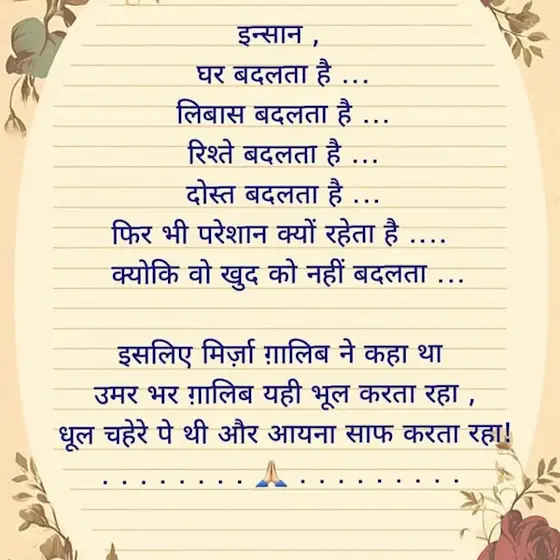 इन्सान ,
घर बदलता है ...
लिबास बदलता है ...
रिश्ते बदलता है ...
दोस्त बदलता है ...
फिर भी परेशान क्यों रहेता है ....
क्योकि वो खुद को नहीं बदलता ...
इसलिए मिर्ज़ा ग़ालिब ने कहा था
उमर भर ग़ालिब यही भूल करता रहा ,
धूल चहेरे पे थी और आयना साफ करता रहा!
. . . . . . . . 🙏🏻 . . . . . . . . . .